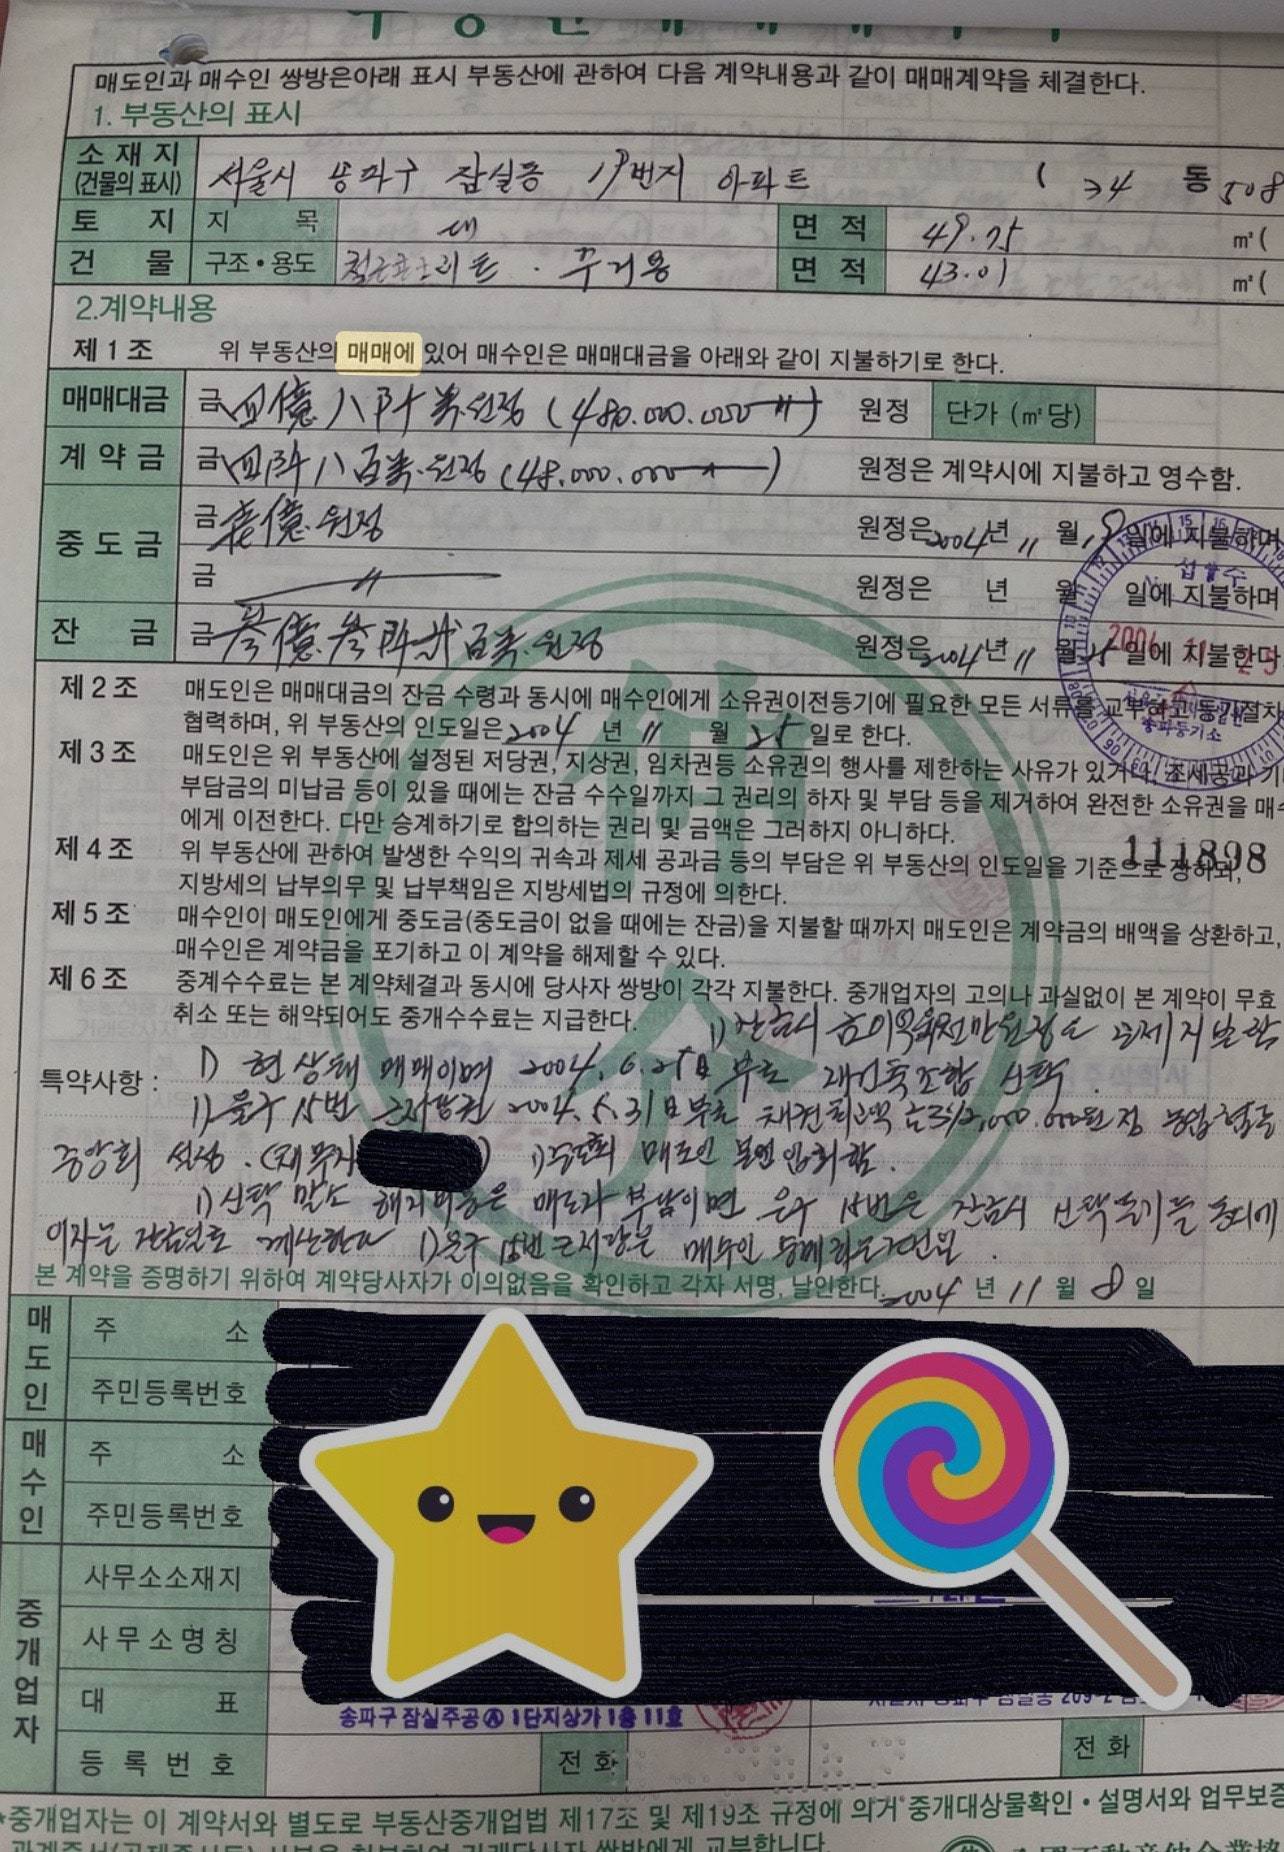 매도인과 매수인 쌍방은아래 표시 부동산에 관하여 다음 계약내용과 같이 매매계약을 체결한다.
1. 부동산의 표시
소 재 지 (건물의 표시) 서울시 송파구 잠실동 19번지 아파트 ( 34 동 508
토 지 지 목 대 면 적 49.75 ㎡(
건 물 구조・용도 철근콘크리트 · 주거용 면 적 43.01 ㎡(
2.계약내용
제 1 조 위 부동산의 매매에 있어 매수인은 매매대금을 아래와 같이 지불하기로 한다.
매매대금 금 四億八阡萬원정 (480.000.000) 원정 단가 (㎡당)
계 약 금 금 四阡八百萬원정 (48.000.000) 원정은 계약시에 지불하고 영수함.
중 도 금 금 壹億원정 원정은 2004년 11 월 19 일에 지불하며
금 원정은 년 월 일에 지불하며
잔 금 금 參億參阡弍百萬원정 원정은 2004년 11 월 25 일에 지불한다
2004 11 25
송파등기소
제 2 조 매도인은 매매대금의 잔금 수령과 동시에 매수인에게 소유권이전등기에 필요한 모든 서류를 교부하고 등기절차
협력하며, 위 부동산의 인도일은 2004 년 11 월 25 일로 한다.
제 3 조 매도인은 위 부동산에 설정된 저당권, 지상권, 임차권등 소유권의 행사를 제한하는 사유가 있거나, 조세공과 기
부담금의 미납금 등이 있을 때에는 잔금 수수일까지 그 권리의 하자 및 부담 등을 제거하여 완전한 소유권을 매수
에게 이전한다. 다만 승계하기로 합의하는 권리 및 금액은 그러하지 아니하다.
제 4 조 위 부동산에 관하여 발생한 수익의 귀속과 제세 공과금 등의 부담은 위 부동산의 인도일을 기준으로 정하되,
111898
지방세의 납부의무 및 납부책임은 지방세법의 규정에 의한다.
제 5 조 매수인이 매도인에게 중도금(중도금이 없을 때에는 잔금)을 지불할 때까지 매도인은 계약금의 배액을 상환하고,
매수인은 계약금을 포기하고 이 계약을 해제할 수 있다.
제 6 조 중계수수료는 본 계약체결과 동시에 당사자 쌍방이 각각 지불한다. 중개업자의 고의나 과실없이 본 계약이 무효
취소 또는 해약되어도 중개수수료는 지급한다. 1) 잔금시 금이억육천만원정
특약사항 : 1) 현 상태 매매이며 2004. 6. 25日 부로 재건축조합 신탁.
1) 을구 15번 근저당권 2004. 5. 31日 부로 채권최고액 금312,000.000원정 농업협동
중앙회 설정. (채무자 ) 1) 매도인 입회함.
1) 신탁 말소 해지비용은 매도자 부담이며 을구 15번은 잔금시 신탁등기를 동시에
이자는 잔금일로 계산한다 1) 을구 15번 근저당은 매수인
본 계약을 증명하기 위하여 계약당사자가 이의없음을 확인하고 각자 서명, 날인한다. 2004 년 11 월 8 일
매도인 주 소
주민등록번호
매수인 주 소
주민등록번호
중개업자 사무소소재지
사 무 소 명 칭
대 표
송파구 잠실주공Ⓐ 1단지상가 1층 11호
등 록 번 호 전 화 전 화
*중개업자는 이 계약서와 별도로 부동산중개업법 제17조 및 제19조 규정에 의거 중개대상물확인・설명서와 업무보증